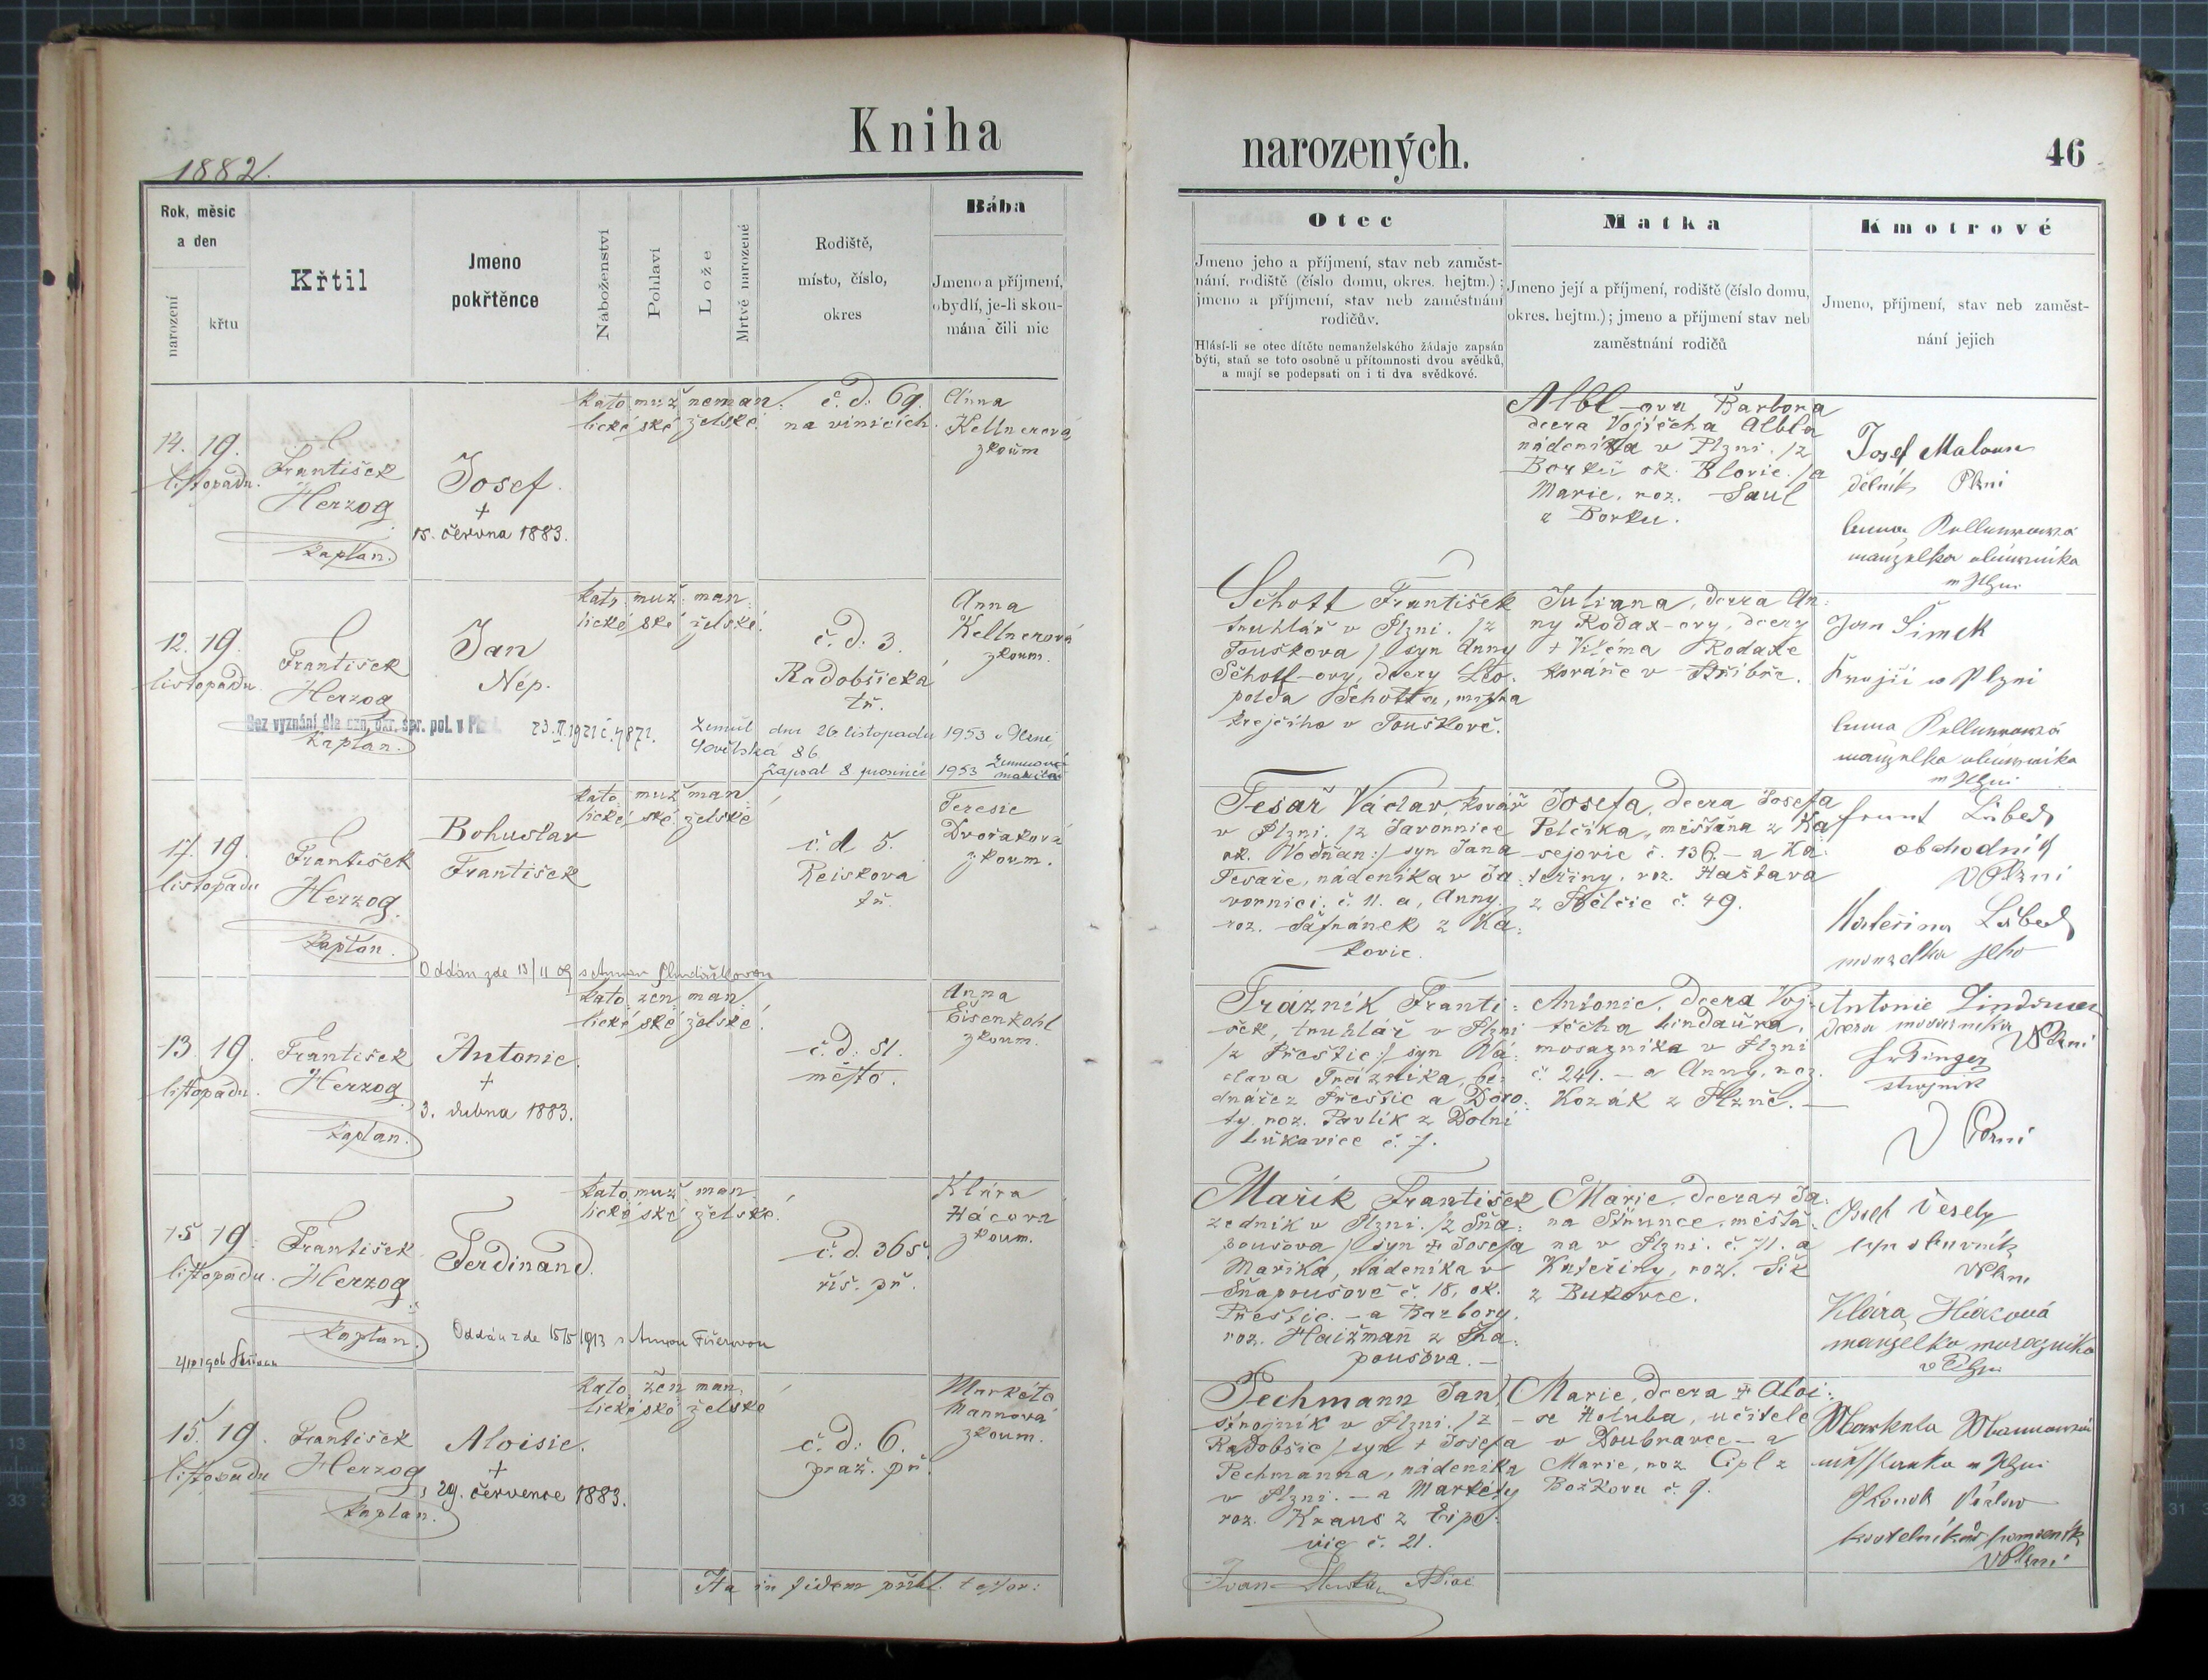 Kniha
narozených.
46
1882.
Rok, měsíc
a den
narození
křtu
Křtil
Jmeno
pokřtěnce
Náboženství
Pohlaví
Lože
Mrtvě narozené
Rodiště,
místo, číslo,
okres
Bába
Jmeno a příjmení,
obydlí, je-li skou-
mána čili nic
Otec
Jmeno jeho a příjmení, stav neb zaměst-
nání, rodiště (číslo domu, okres. hejtm.);
jmeno a příjmení, stav neb zaměstnání
rodičův.
Hlásí-li se otec dítěte nemanželského žádaje zapsán
býti, staň se toto osobně u přítomnosti dvou svědků,
a mají se podepsati on i ti dva svědkové.
Matka
Jmeno její a příjmení, rodiště (číslo domu,
okres. hejtm.); jmeno a příjmení stav neb
zaměstnání rodičů
Kmotrové
Jmeno, příjmení, stav neb zaměst-
nání jejich
14. 19.
listopadu.
František
Herzog
kaplan.
Josef.
+
15. června 1883.
kato muž neman:
lické ské želské
č. d. 69.
na vinicích.
Anna
Kellnerová
zkoum
Albl-ova Barbora
dcera Vojtěcha Albla
nádeníka v Plzni. /z
Borků ok. Blovic./a
Marie, roz. Saul
z Borku.
Josef Maloun
dělník Plzni
Anna Kellnerová
manželka
12. 19.
listopadu
František
Herzog
kaplan.
Jan
Nep.
kato muž man:
lické ské želské.
č. d. 3.
Radobšická
tř.
Anna
Kellnerová
zkoum.
Bez vyznání dle ozn. okr. spr. pol. v
23. II. 1921 č. 4872.
Zemřel dne 26 listopadu 1953 v Plzni,
86.
Zapsal 8 prosince 1953
Schott František
truhlář v Plzni. /z
Touškova / syn Anny
Schott-ovy, dcery Leo-
polda Schotta, mistra
krejčího v Touškově.
Juliana, dcera An:
ny Rodax-ovy, dcery
+ Viléma Rodaxe
kováře v Stříbře.
Jan Šimek
Krejčí v Plzni
Anna Kellnerová
manželka
17. 19.
listopadu
František
Herzog.
kaplan.
Bohuslav
František
kato muž man:
lické ské želské
č. d 5.
Reiskova
tř.
Terezie
Dvořaková
zkoum.
Oddán zde 13/11 09 s Annou
Tesař Václav, kovář
v Plzni. /z Javornice
ok. Vodňan:/ syn Jana
Tesaře, nádeníka v Ja-
vornici. č. 11. a, Anny.
roz. Šafránek z Ka:
kovic.
Josefa, dcera Josefa
Pelcika, měšťana z Ka
sejovic č. 136. – a Ka:
teřiny, roz. Haštava
č. 49.
obchodník
v Plzni
Kateřina
manželka jeho
13. 19.
listopadu.
František
Herzog
kaplan.
Antonie.
+
3. dubna 1883.
kato žen man:
lické ské želské.
č. d: 51.
město.
Anna
Eisenkohl
zkoum.
Trázník Franti:
šek, truhlář v Plzni
/z Přeštic:/ syn Vá:
clava Trázníka, be:
dnáře z Přeštic a Doro:
ty. roz. Pavlík z Dolní
Lukavice č. 7.
Antonie, dcera Voj-
těcha Lindaura,
mosazníka v Plzni
č. 241. – a Anny, roz.
Kozák z Plzně. –
Antonie
dcera mosazníka
v Plzni
strojník
v Plzni
15 19.
listopadu.
František
Herzog
kaplan.
Ferdinand.
kato muž man.
lické ské želské.
č. d. 365.
říš. př.
Klára
Hácova
zkoum.
Oddán zde 15/5 1913 s Annou
Mařík František
zedník v Plzni. /z Sňa:
poušova / syn + Josefa
Maříka, nádeníka v
Sňapoušově č. 18, ok.
Přeštic. – a Barbory.
roz. Haižman z Sňa:
poušova. –
Marie, dcera + Ja:
na Strunce, měšťa:
na v Plzni. č. 71. a
Kateřiny, roz. Šik
z Bukovce.
Josef Veselý
v Plzni
Klára Hácová
manželka mosazníka
v Plzni
15. 19.
listopadu
František
Herzog
kaplan.
Aloisie.
+
29. července 1883.
kato žen man.
lické ské želské
č. d: 6.
praž. př.
Markéta
Mannová
zkoum.
Pechmann Jan,
strojník v Plzni. /z
Radobšic / syn + Josefa
Pechmanna, nádeníka
v Plzni. – a Markéty
roz. Kraus z Lipo-
vic č. 21.
Marie, dcera + Aloi:
se Holuba, učitele
v Doubravce – a
Marie, roz Cipl z
Božkova č. 9.
Markéta Mannová
v Plzni
v Plzni
Ita in fidem